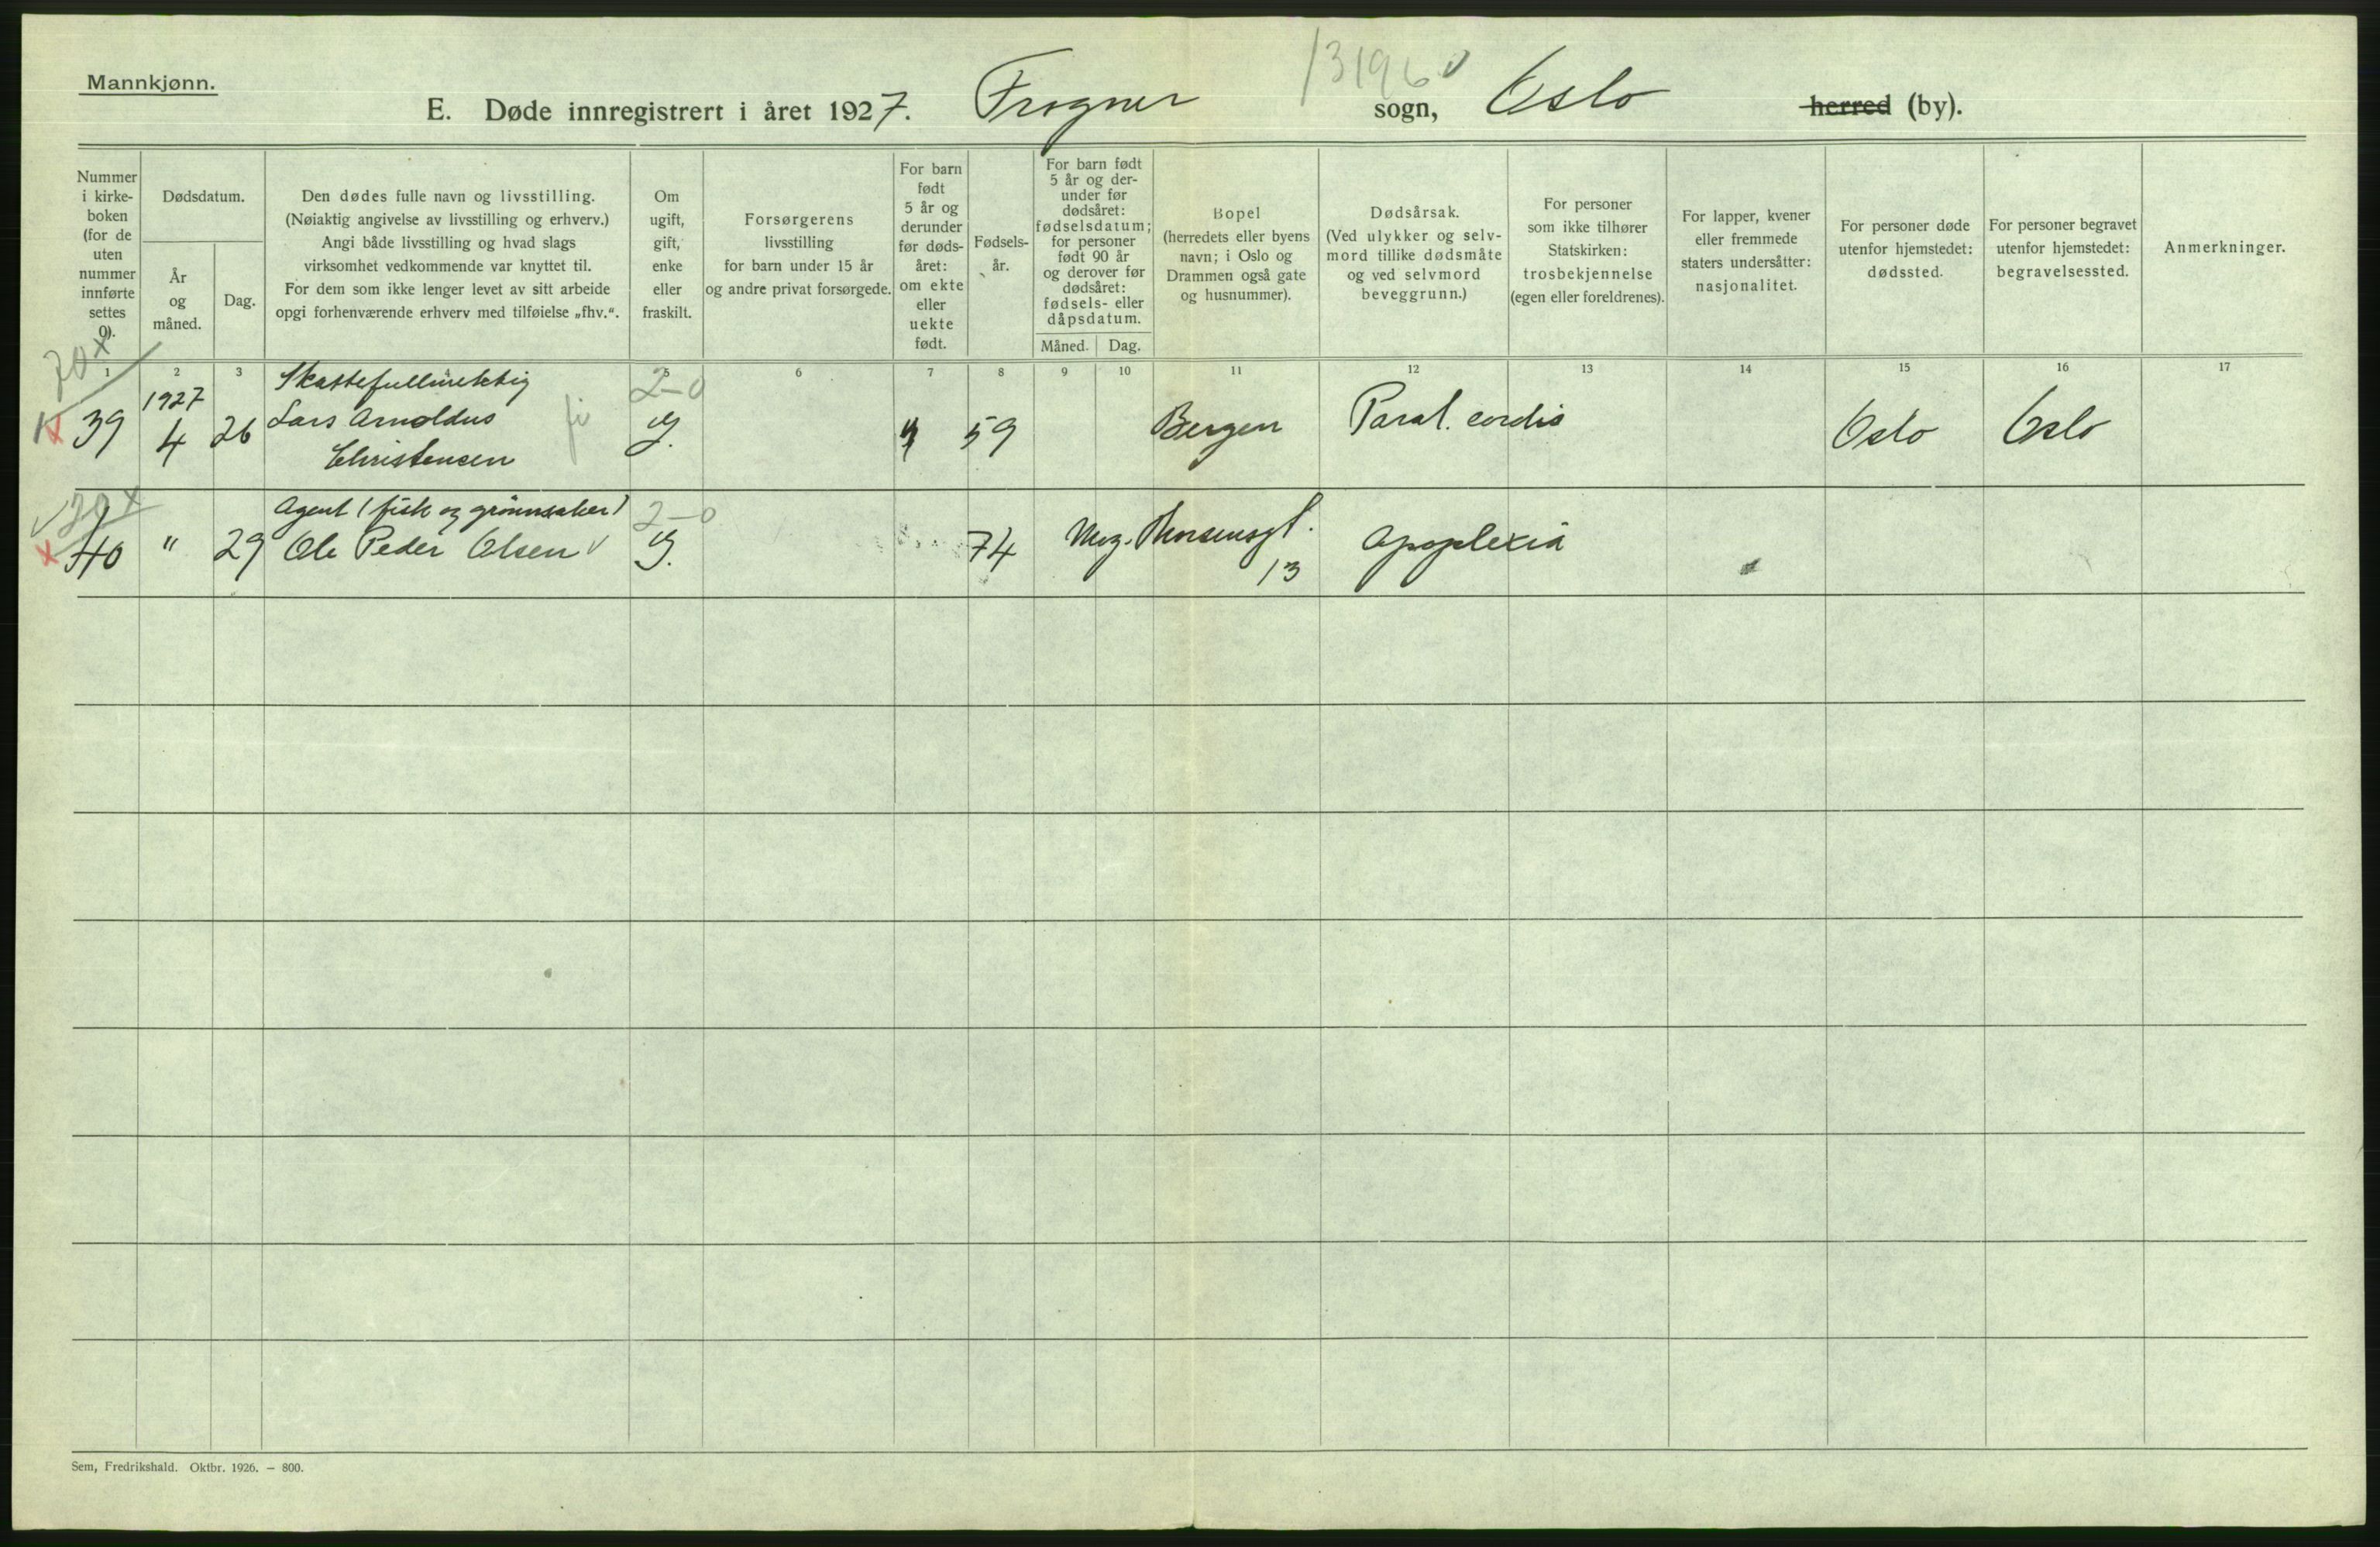 Mannkjønn.
13196
E. Døde innregistrert i året 1927. Frogner sogn, Oslo herred (by).
Nummer i kirke- boken (for de uten nummer innførte settes 0).
Dødsdatum.
År og måned.
Dag.
Den dødes fulle navn og livsstilling.
(Nøiaktig angivelse av livsstilling og erhverv.)
Angi både livsstilling og hvad slags
virksomhet vedkommende var knyttet til.
For dem som ikke lenger levet av sitt arbeide
opgi forhenværende erhverv med tilføielse „fhv.“.
Om ugift, gift, enke eller fraskilt.
Forsørgerens
livsstilling
for barn under 15 år
og andre privat forsørgede.
For barn født 5 år og derunder før døds- året: om ekte eller uekte født.
Fødsels- år.
For barn født 5 år og der- under før dødsåret: fødselsdatum; for personer født 90 år og derover før dødsåret: fødsels- eller dåpsdatum.
Måned. Dag.
Bopel
(herredets eller byens
navn; i Oslo og
Drammen også gate
og husnummer).
Dødsårsak.
(Ved ulykker og selv-
mord tillike dødsmåte
og ved selvmord
beveggrunn.)
For personer
som ikke tilhører
Statskirken:
trosbekjennelse
(egen eller foreldrenes).
For lapper, kvener
eller fremmede
staters undersåtter:
nasjonalitet.
For personer døde
utenfor hjemstedet:
dødssted.
For personer begravet
utenfor hjemstedet:
begravelsessted.
Anmerkninger.
1 2 3 5 6 7 8 9 10 11 12 13 14 15 16 17
Skattefullmektig 2-0
1927
39 4 26 Lars Arnoldus G. 59 Bergen Paral. cordis Oslo Oslo
Christensen
Agent (fisk og grønnsaker) 2-0
40 " 29 Ole Peder Olsen G. 74 Mog. Thorsensgt. Apoplexia
13
Sem, Fredrikshald. Oktbr. 1926. — 800.